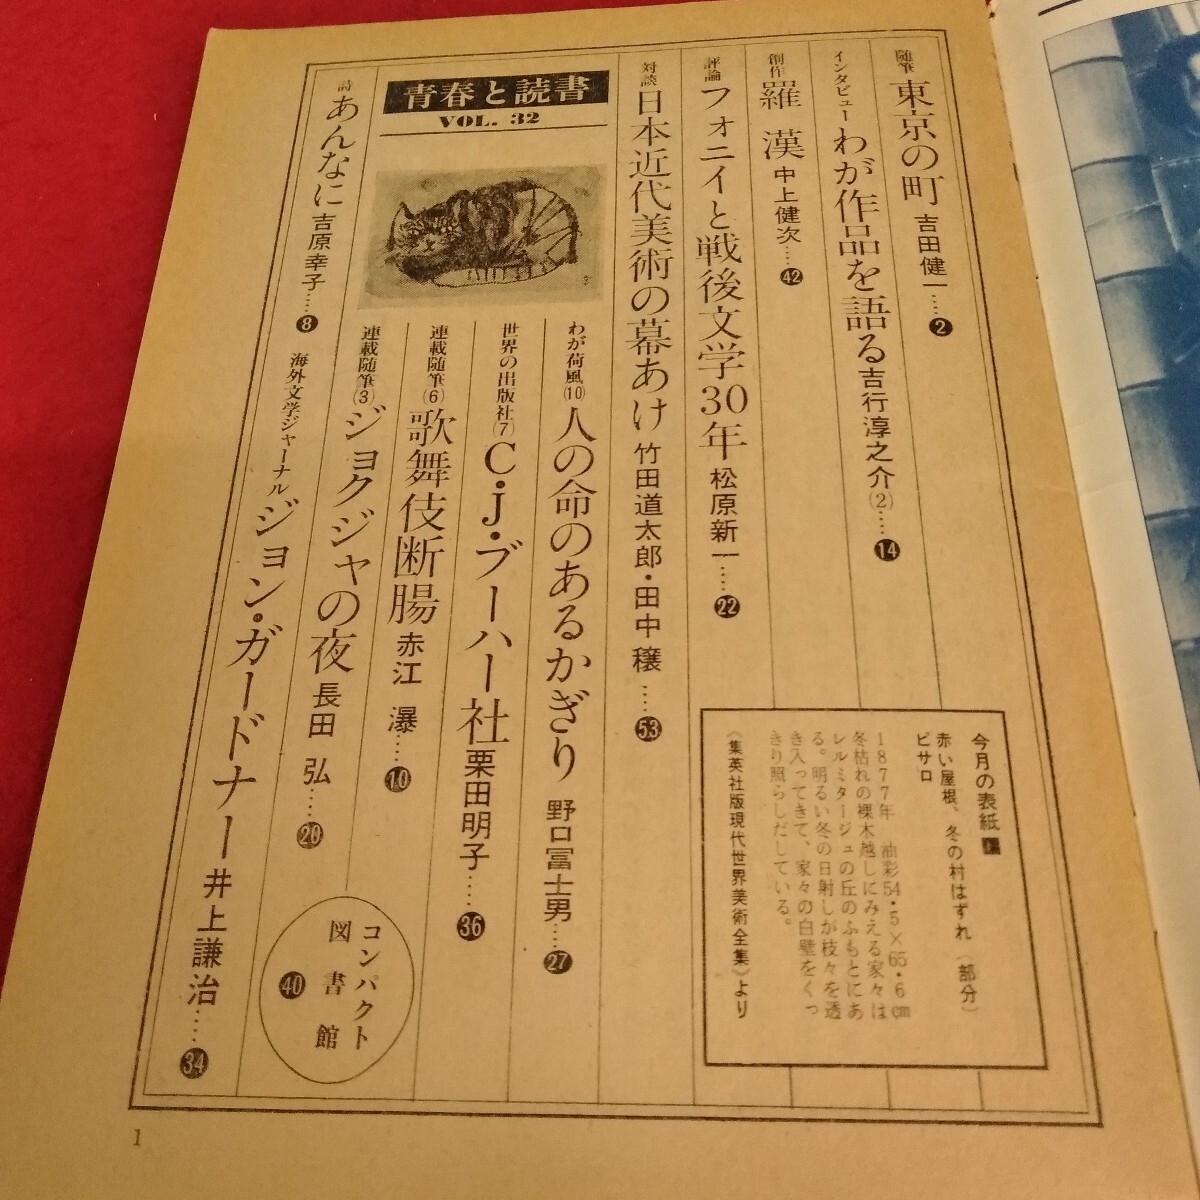 随筆 東京の町 吉田健一……2
インタビュー わが作品を語る 吉行淳之介(2)……14
創作 羅漢 中上健次……42
評論 フォニイと戦後文学30年 松原新一……22
対談 日本近代美術の幕あけ 竹田道太郎・田中 穣……53
青春と読書
VOL. 32
わが荷風(10) 人の命のあるかぎり 野口冨士男……27
世界の出版社(7) C・J・ブーハー社 栗田明子……36
連載随筆(6) 歌舞伎断腸 赤江 瀑……10
連載随筆(3) ジョクジャの夜 長田 弘……20
詩 あんなに 吉原幸子……8
海外文学ジャーナル ジョン・ガードナー 井上謙治……34
コンパクト
図書館
40
今月の表紙
赤い屋根、冬の村はずれ(部分)
ピサロ
1877年 油彩54・5×65・6cm
冬枯れの裸木越しにみえる家々は
レルミタージュの丘のふもとにあ
る。明るい冬の日射しが枝々を透
き入ってきて、家々の白壁をくっ
きり照らしだしている。
《集英社版現代世界美術全集》より
1